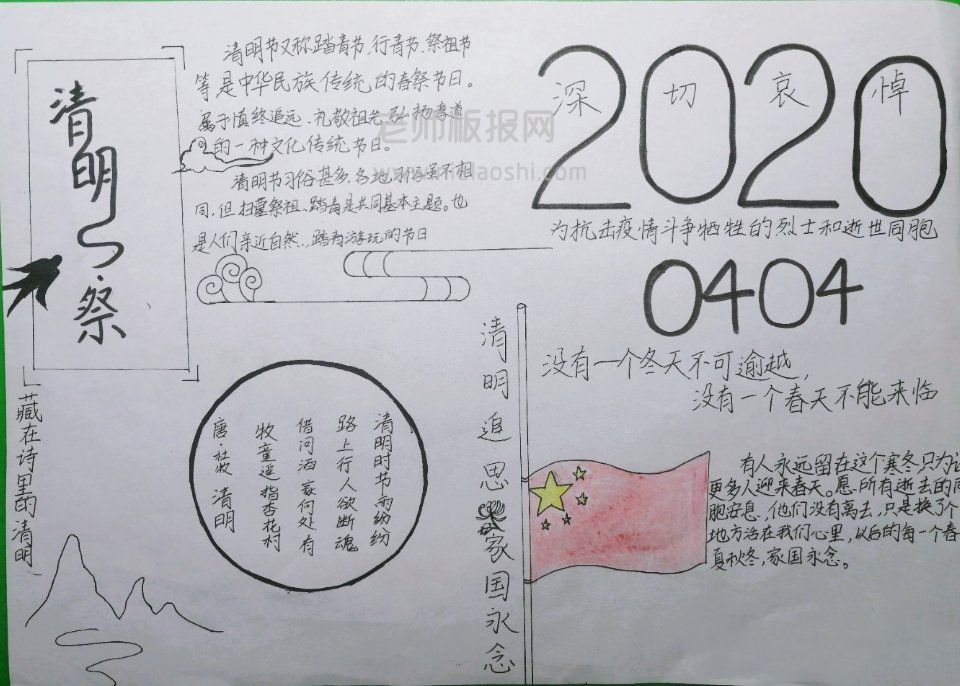 清明
祭
清明节又称踏青节、行青节、祭祖节
等是中华民族传统的春祭节日。
属于慎终追远、礼敬祖先、弘扬孝道
的一种文化传统节日。
清明节习俗甚多、各地习俗虽不相
同,但扫墓祭祖、踏青是共同基本主题。也
是人们亲近自然、踏青游玩的节日
老师板报网
2020
深切哀悼
为抗击疫情斗争牺牲的烈士和逝世同胞
0404
没有一个冬天不可逾越,
没有一个春天不能来临
藏在诗里的清明
清明时节雨纷纷
路上行人欲断魂
借问酒家何处有
牧童遥指杏花村
唐·杜牧 清明
清明追思家国永念
有人永远留在这个寒冬只为让
更多人迎来春天。愿所有逝去的同
胞安息,他们没有离去,只是换了个
地方活在我们心里,以后的每一个春
夏秋冬,家国永念。